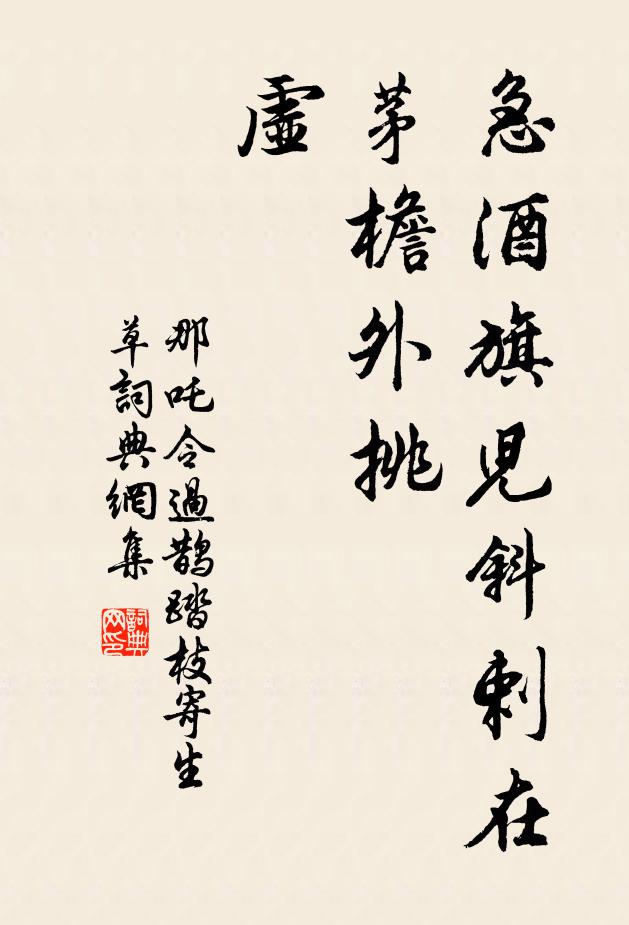 急酒旗児斜刺在
茅檐外挑
虛
那吒令過鵲踏枝寄生
草詞典網集
詞典
网印